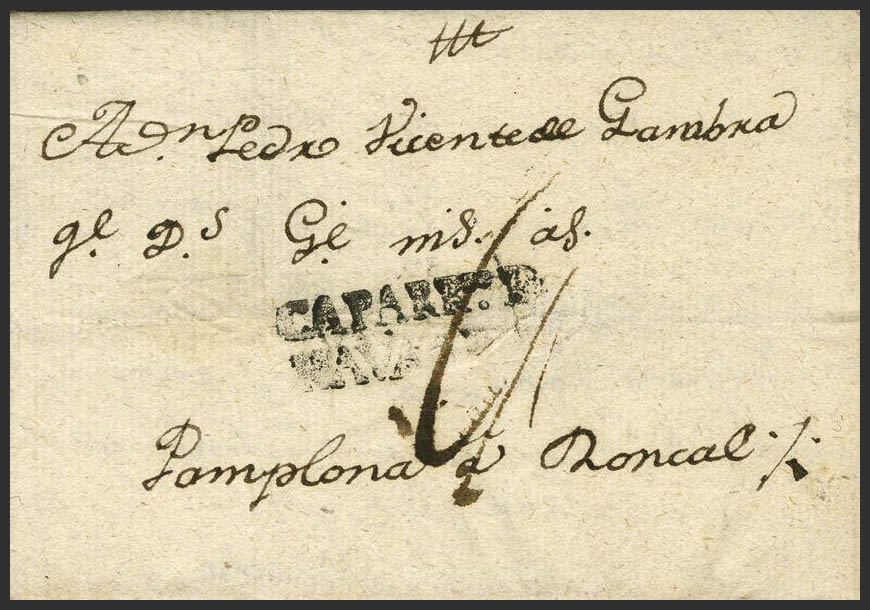 A D.n Pedro Vicente de Gambra
q.e D.s G.e m.s a.s
CAPARR
NAVA
Pamplona a Roncal